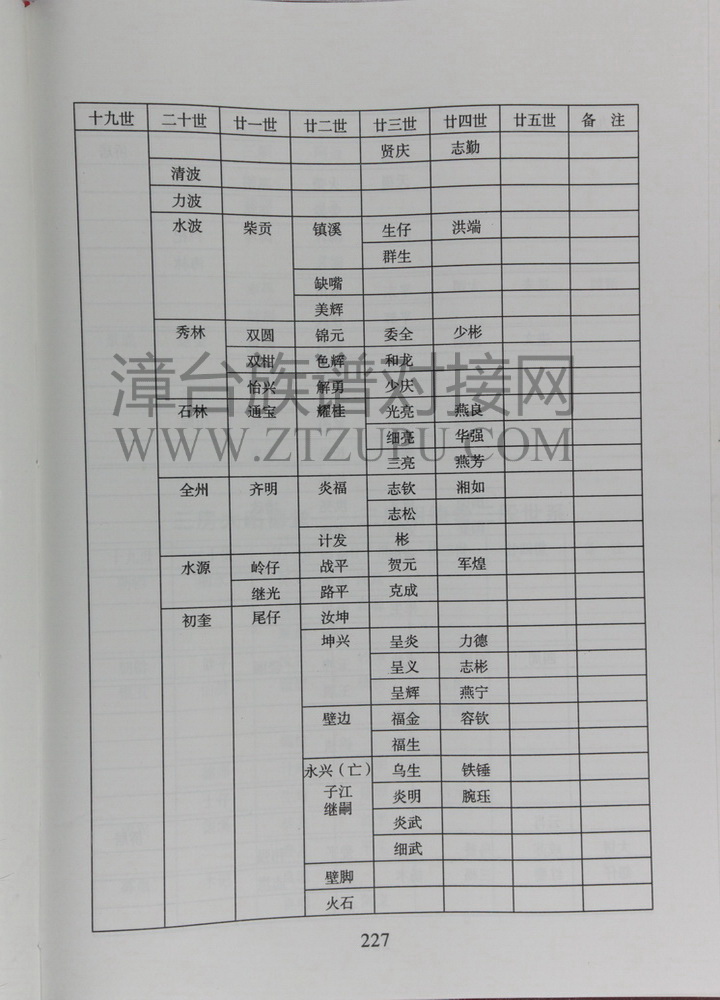 十九世 二十世 廿一世 廿二世 廿三世 廿四世 廿五世 备 注
贤庆 志勤
清波
力波
水波 柴贡 镇溪 生仔 洪端
群生
缺嘴
美辉
秀林 双圆 锦元 委全 少彬
双柑 色辉 和龙
怡兴 解勇 少庆
石林 通宝 耀桂 光亮 燕良
细亮 华强
三亮 燕芳
全州 齐明 炎福 志钦 湘如
志松
计发 彬
水源 岭仔 战平 贺元 军煌
继光 路平 克成
初奎 尾仔 汝坤
坤兴 呈炎 力德
呈义 志彬
呈辉 燕宁
壁边 福金 容钦
福生
永兴（亡） 乌生 铁锤
子江 炎明 腕珏
继嗣
炎武
细武
壁脚
火石
227
漳台族谱对接网
WWW.ZTZUPU.COM